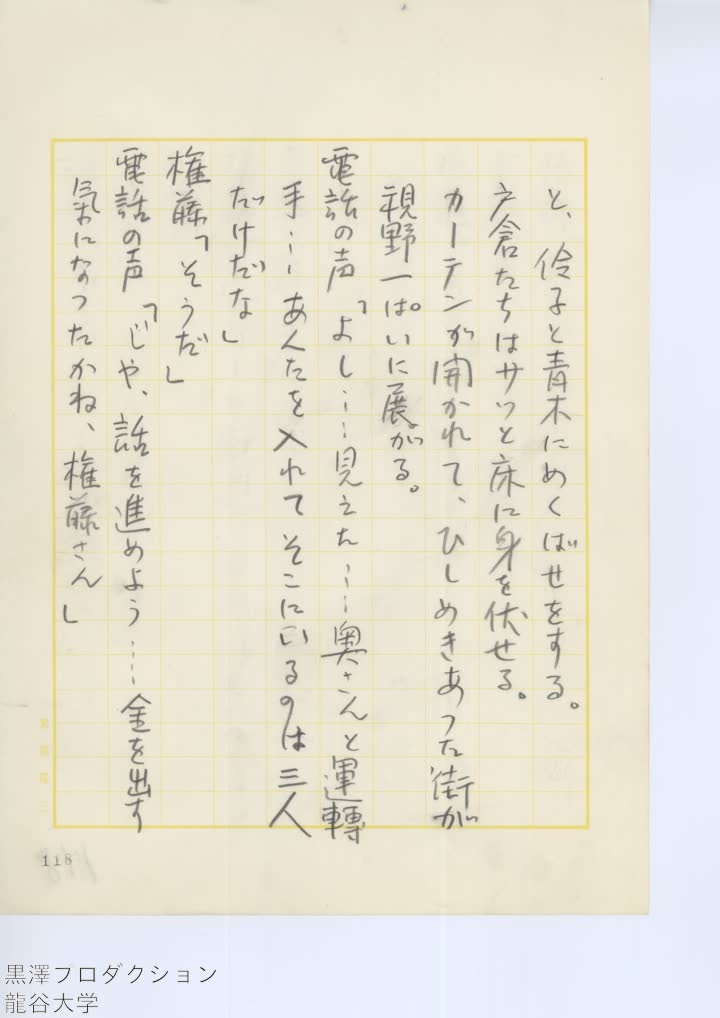 と、伶子と青木にめくばせをする。
戸倉たちはサッと床に身を伏せる。
カーテンが開かれて、ひしめきあった街が
視野一ぱいに展がる。
電話の声「よし……見えた……奥さんと運轉
手……あんたを入れてそこにいるのは三人
だけだな」
権藤「そうだ」
電話の声「じゃ、話を進めよう……金を出す
氣になったかね、権藤さん」
118
黒澤プロダクション
龍谷大学